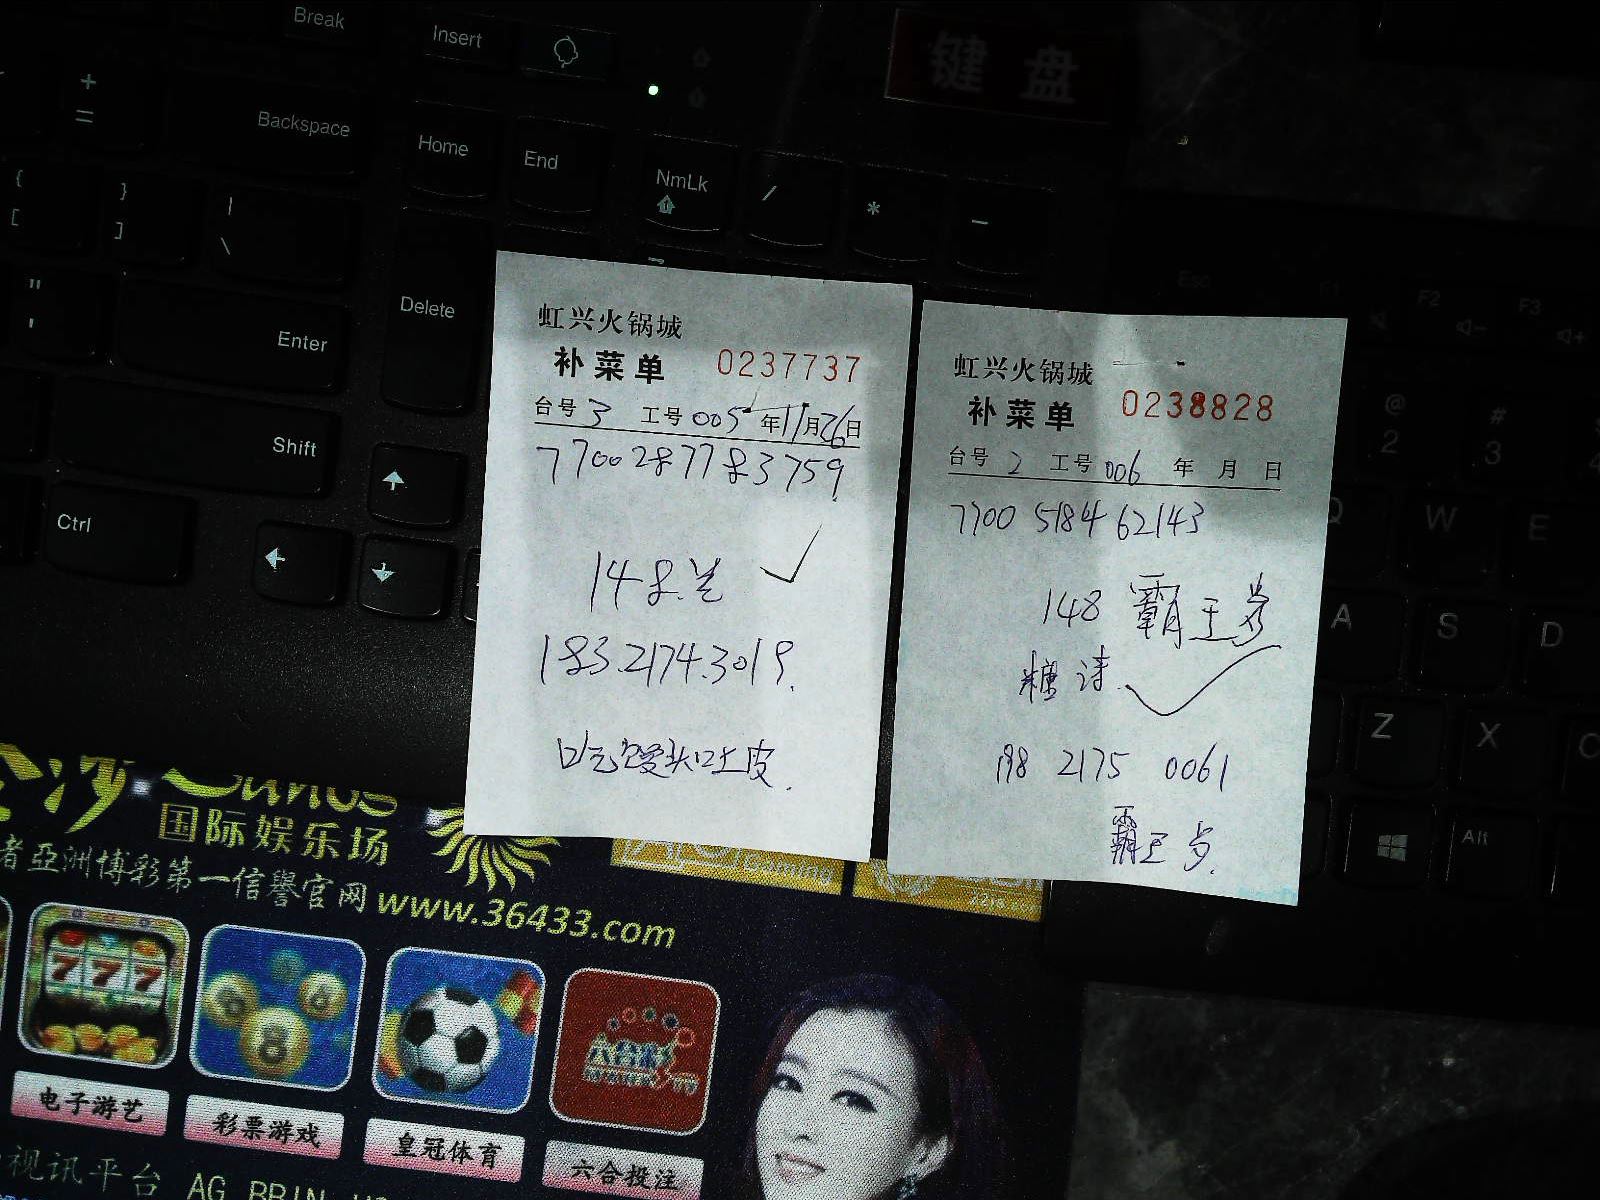 Break
Insert
键盘
+
=
Backspace
Home
End
NmLk
/
*
-
{
[
}
]
|
\
Delete
"
'
Enter
Shift
Ctrl
Esc
F1
F2
F3
@
2
#
3
Q
W
E
A
S
D
Z
X
C
Alt
虹兴火锅城
补菜单 0237737
台号 3 工号 005 年11月26日
7700287783759
148.
183.2174.3019.
虹兴火锅城
补菜单 0238828
台号 2 工号 006 年 月 日
7700 5184 62143
148 霸王
糖
198 2175 0061
霸王
国际娱乐场
者亞洲博彩第一信譽官网www.36433.com
Gaming
电子游艺
彩票游戏
皇冠体育
六合投注
视讯平台 AG BBIN